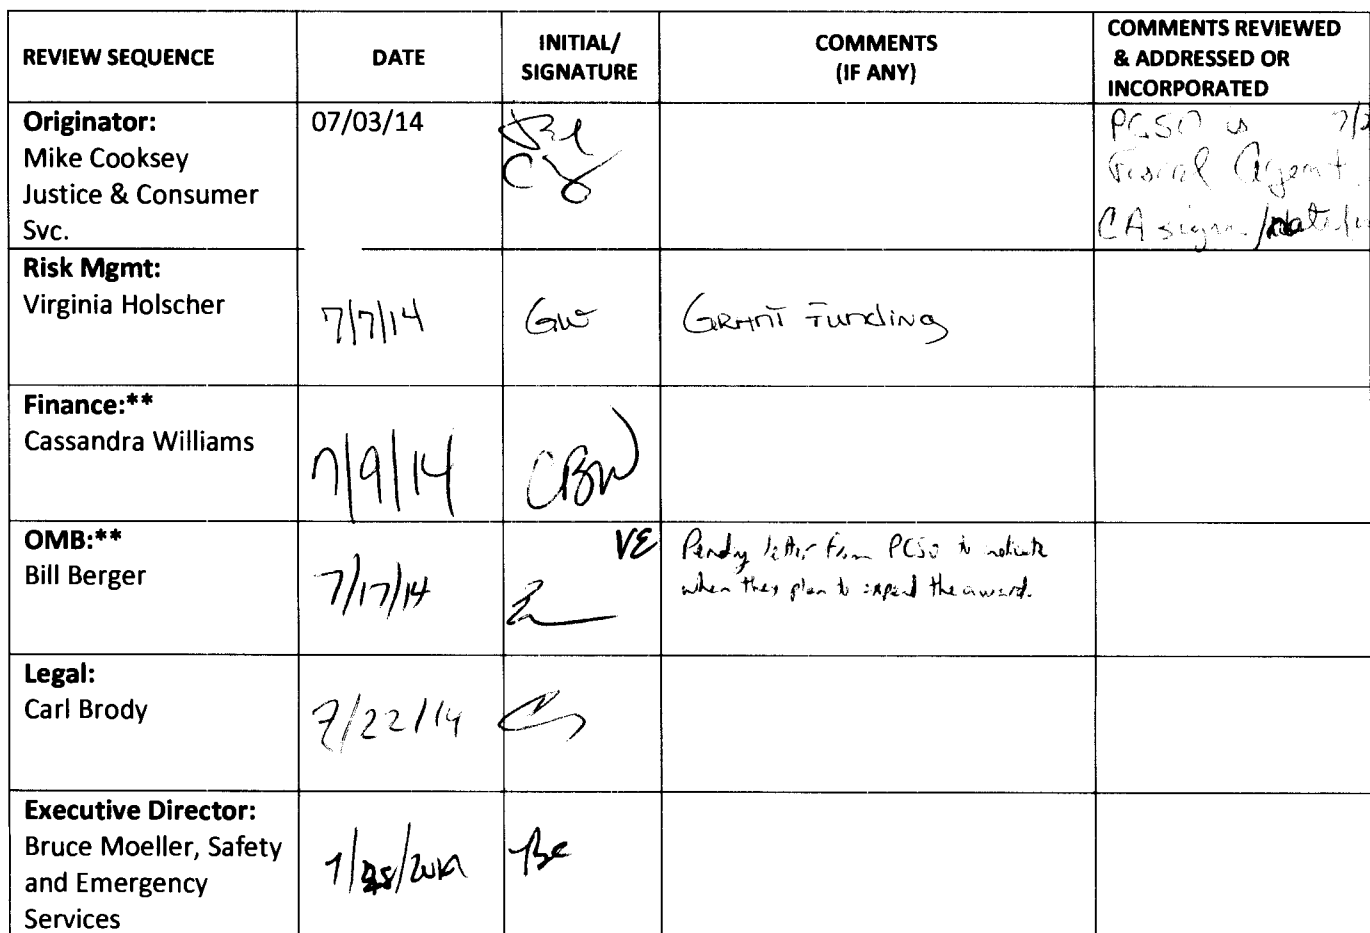 REVIEW SEQUENCE
DATE
INITIAL/
SIGNATURE
COMMENTS
(IF ANY)
COMMENTS REVIEWED
& ADDRESSED OR
INCORPORATED
Originator:
Mike Cooksey
Justice & Consumer
Svc.
07/03/14
PCSO is
Fiscal Agent
CA
Risk Mgmt:
Virginia Holscher
7/7/14
GW
GRANT Funding
Finance:**
Cassandra Williams
7/9/14
CBW
OMB:**
Bill Berger
7/17/14
VE
Pending letter from PCSO to indicate
when they plan to expend the award.
Legal:
Carl Brody
7/22/14
Executive Director:
Bruce Moeller, Safety
and Emergency
Services